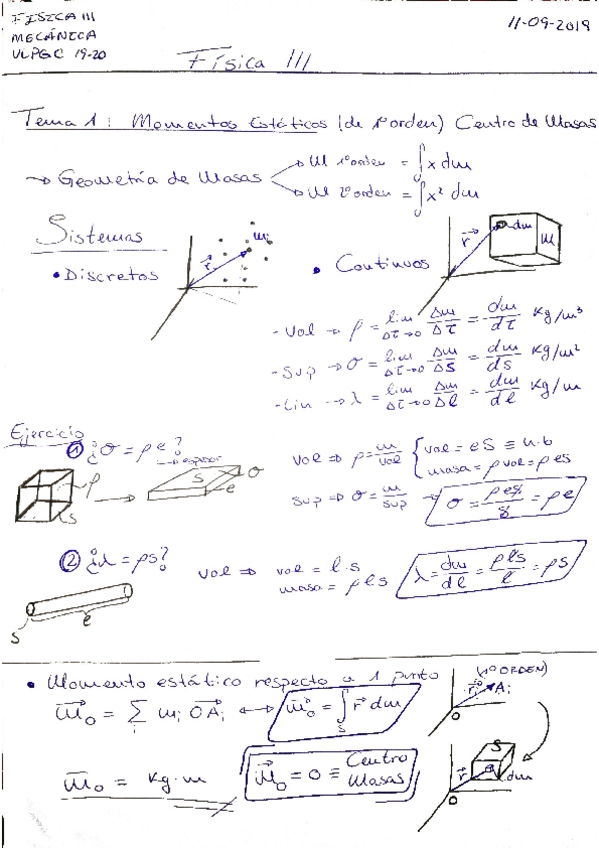 FISICA III
MECÁNICA
ULPGC 19-20
11-09-2019
Física III
Tema 1: Momentos Estáticos (de 1º orden) Centro de Masas
→ Geometría de Masas
→ M 1º orden = ∫ x dm
→ M 2º orden = ∫ x² dm
Sistemas
• Discretos
r⃗ mᵢ
• Continuos
r⃗ dm M
- Vol → ρ = lim Δτ→0 Δm/Δτ = dm/dτ Kg/m³
- Sup → σ = lim Δτ→0 Δm/ΔS = dm/ds Kg/m²
- Lin → λ = lim Δτ→0 Δm/Δl = dm/dl Kg/m
Ejercicio
① ¿σ = ρe?
→ espesor
ρ S S σ e
vol ⇒ ρ = m/vol { vol = eS ≡ h·b
masa = ρ vol = ρ es
sup ⇒ σ = m/sup → σ = ρes/s = ρe
② ¿λ = ρs?
s l
vol ⇒ vol = l·s
masa = ρls
λ = dm/dl = ρls/l = ρs
• Momento estático respecto a 1 punto (1º ORDEN)
m⃗₀ = Σᵢ mᵢ OA⃗ᵢ ↔ m⃗₀ = ∫ₛ r⃗ dm
r⃗ᵢ Aᵢ O
m⃗₀ = Kg·m
m⃗₀ = 0 ≡ Centro Masas
S r⃗ dm O